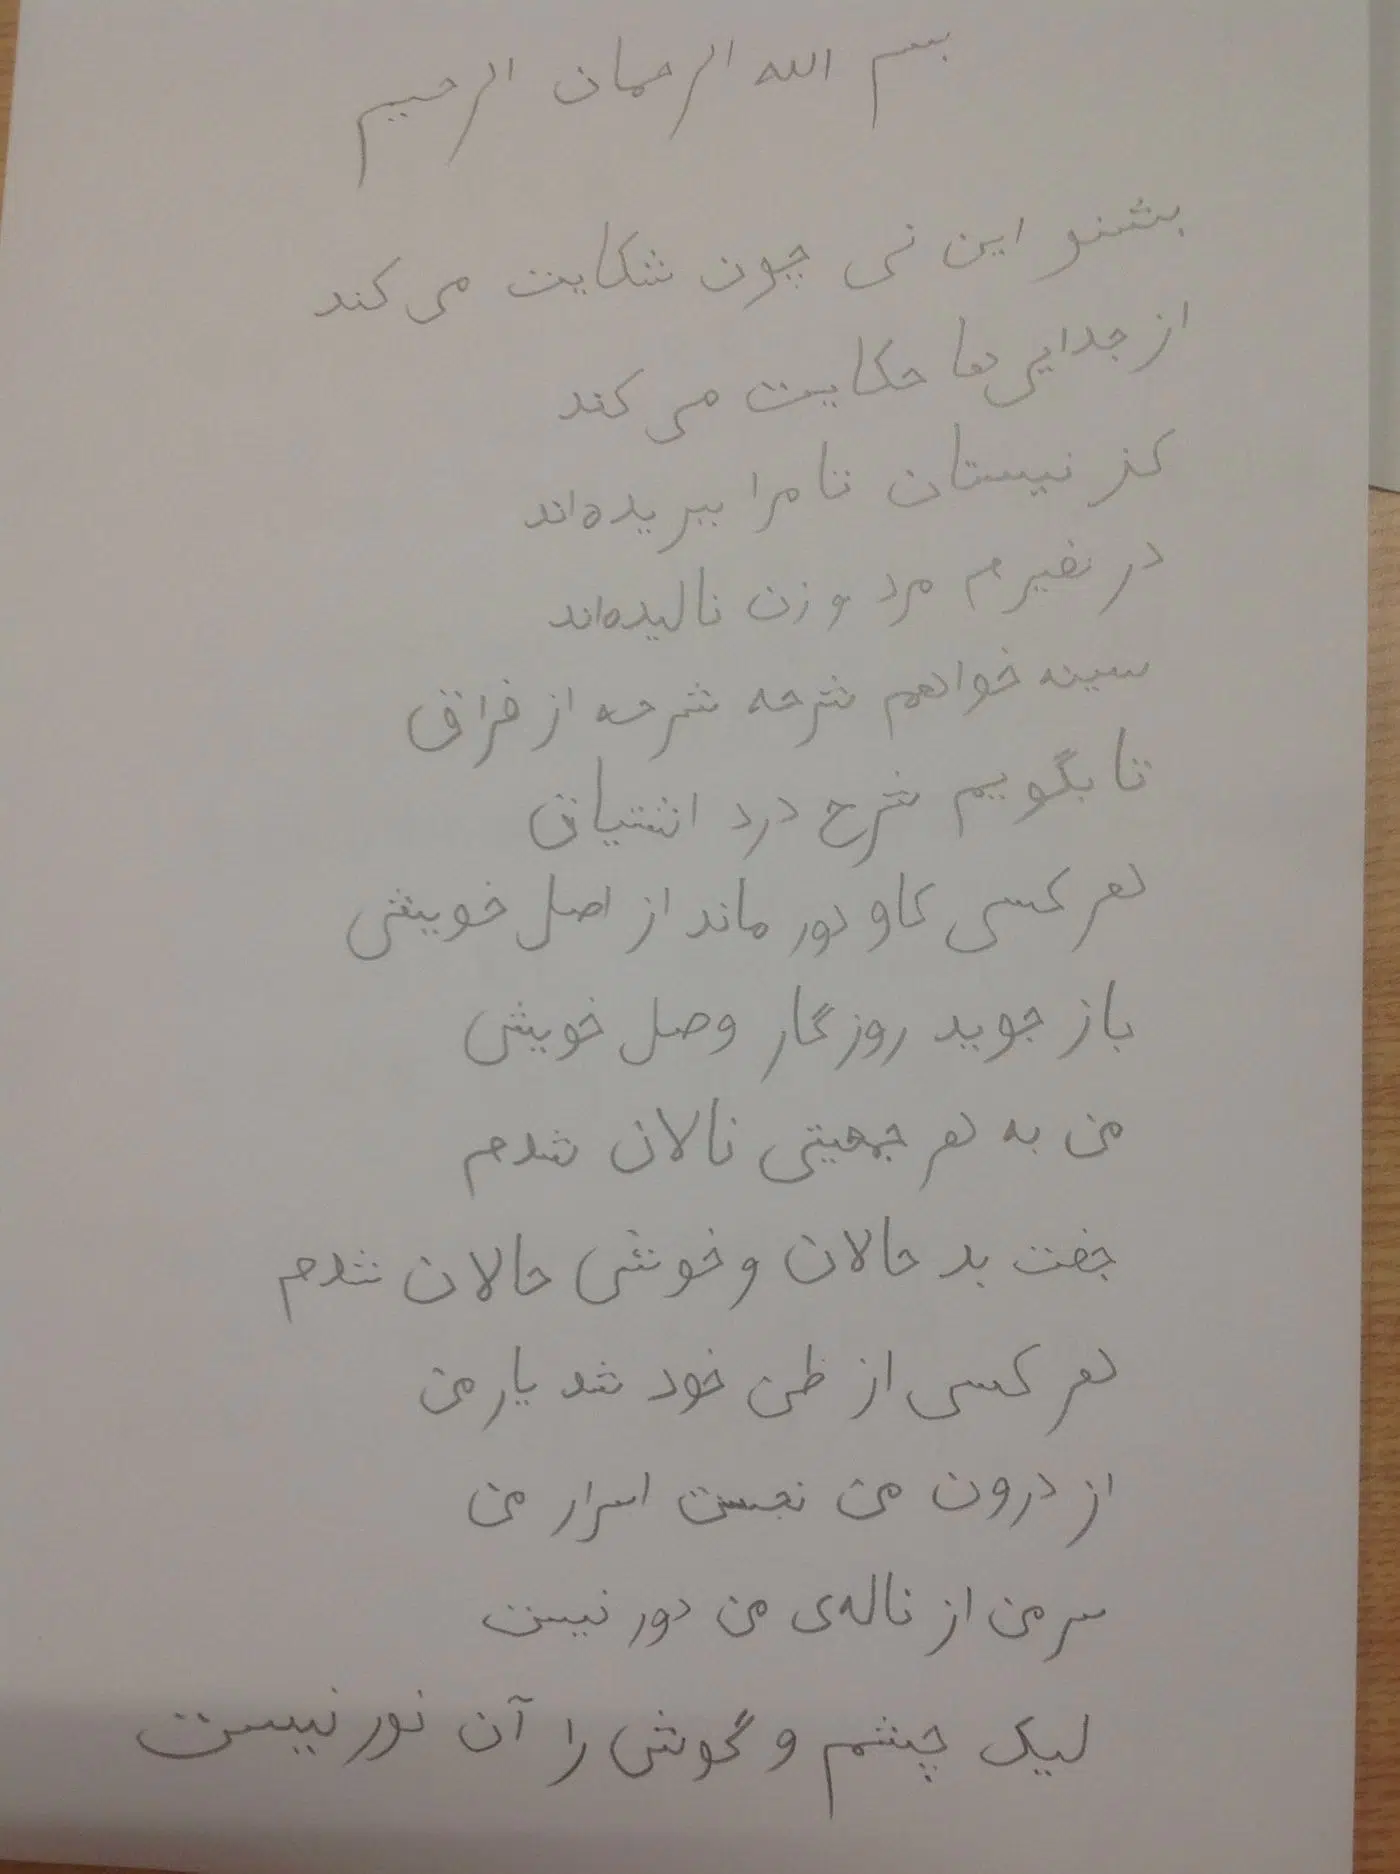 بسم الله الرحمان الرحیم
بشنو این نی چون شکایت می‌کند
از جدایی‌ها حکایت می‌کند
کز نیستان تا مرا ببریده‌اند
در نفیرم مرد و زن نالیده‌اند
سینه خواهم شرحه شرحه از فراق
تا بگویم شرح درد اشتیاق
هر کسی کاو دور ماند از اصل خویش
باز جوید روزگار وصل خویش
من به هر جمعیتی نالان شدم
جفت بد حالان و خوش حالان شدم
هر کسی از ظن خود شد یار من
از درون من نجست اسرار من
سر من از ناله‌ی من دور نیست
لیک چشم و گوش را آن نور نیست